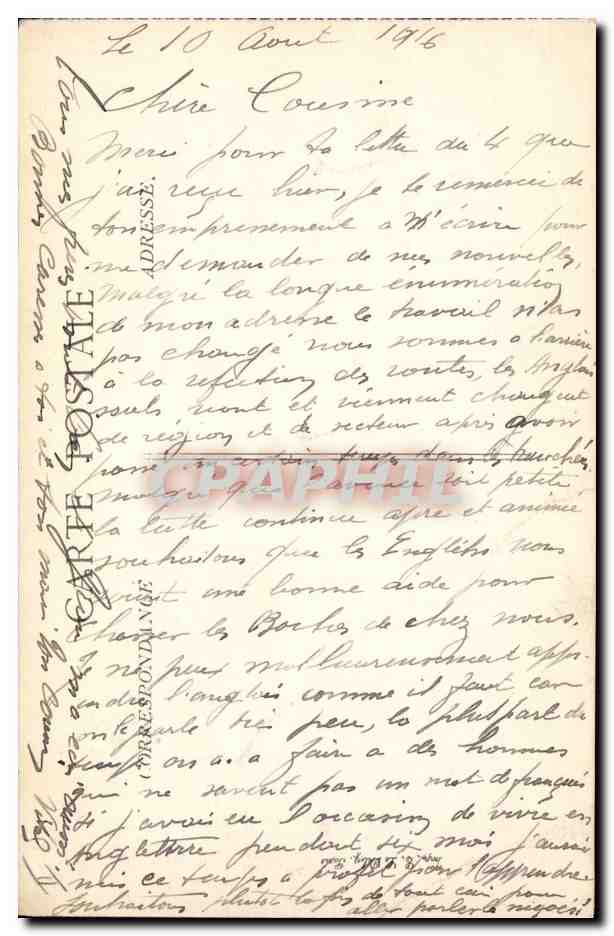 Le 10 Aout 1916
Chère Cousine
Merci pour ta lettre du 4 que
j'ai reçue hier, je te remercie de
ton empressement a m'écrire pour
me demander de mes nouvelles,
Malgré la longue énumération
de mon adresse le travail n'as
pas changé nous sommes a l'arrière
à la refection des routes, les Anglais
seuls vont et viennent changent
de région et de secteur après avoir
passé un certain temps dans les tranchées
malgré que l'avance soit petite
la lutte continue apre et animée
souhaitons que les Englishs nous
une bonne aide pour
chasser les Boches de chez nous.
Je ne peux malheureusement appr-
endre l'anglais comme il faut car
on le parle très peu, la pluspart du
temps on a a faire a des hommes
qui ne savent pas un mot de français
Si j'avais eu l'occasion de vivre en
Angleterre pendant six mois j'aurai
mis ce temps a profit pour l'apprendre
Souhaitons plutôt la fin de tout ceci pour
aller parler le
Bonnes Caresses a toi et ton mari Ton Cousin
CARTE POSTALE
ADRESSE.
CORRESPONDANCE
CPAPHIL